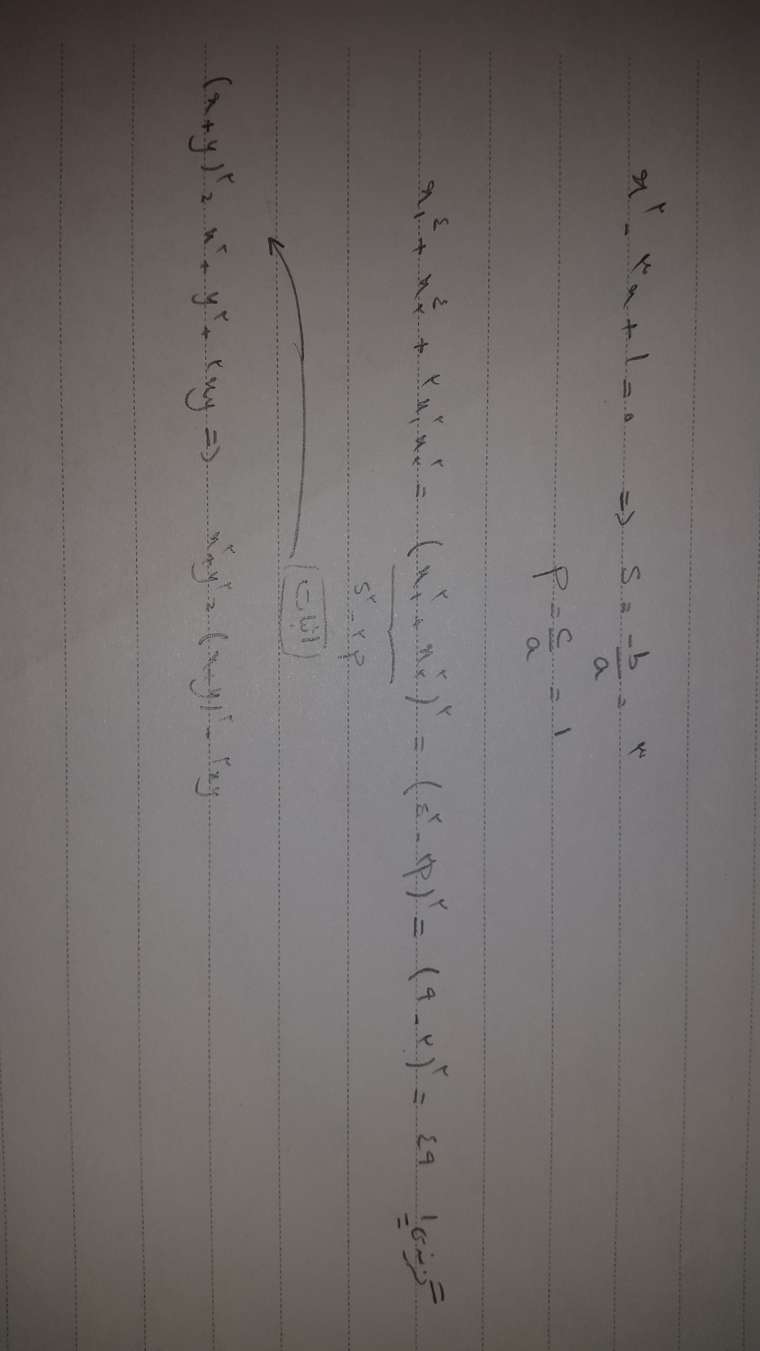 x^۲ - ۳x + ۱ = ۰ => S = -b/a = ۳
P = c/a = ۱
x₁^۴ + x₂^۴ + ۲x₁^۲x₂^۲ = (x₁^۲ + x₂^۲)^۲ = (S^۲ - ۲P)^۲ = (۹ - ۲)^۲ = ۴۹ گزینه ۱
S^۲ - ۲P
اثبات
(x+y)^۲ = x^۲ + y^۲ + ۲xy => x^۲ + y^۲ = (x+y)^۲ - ۲xy